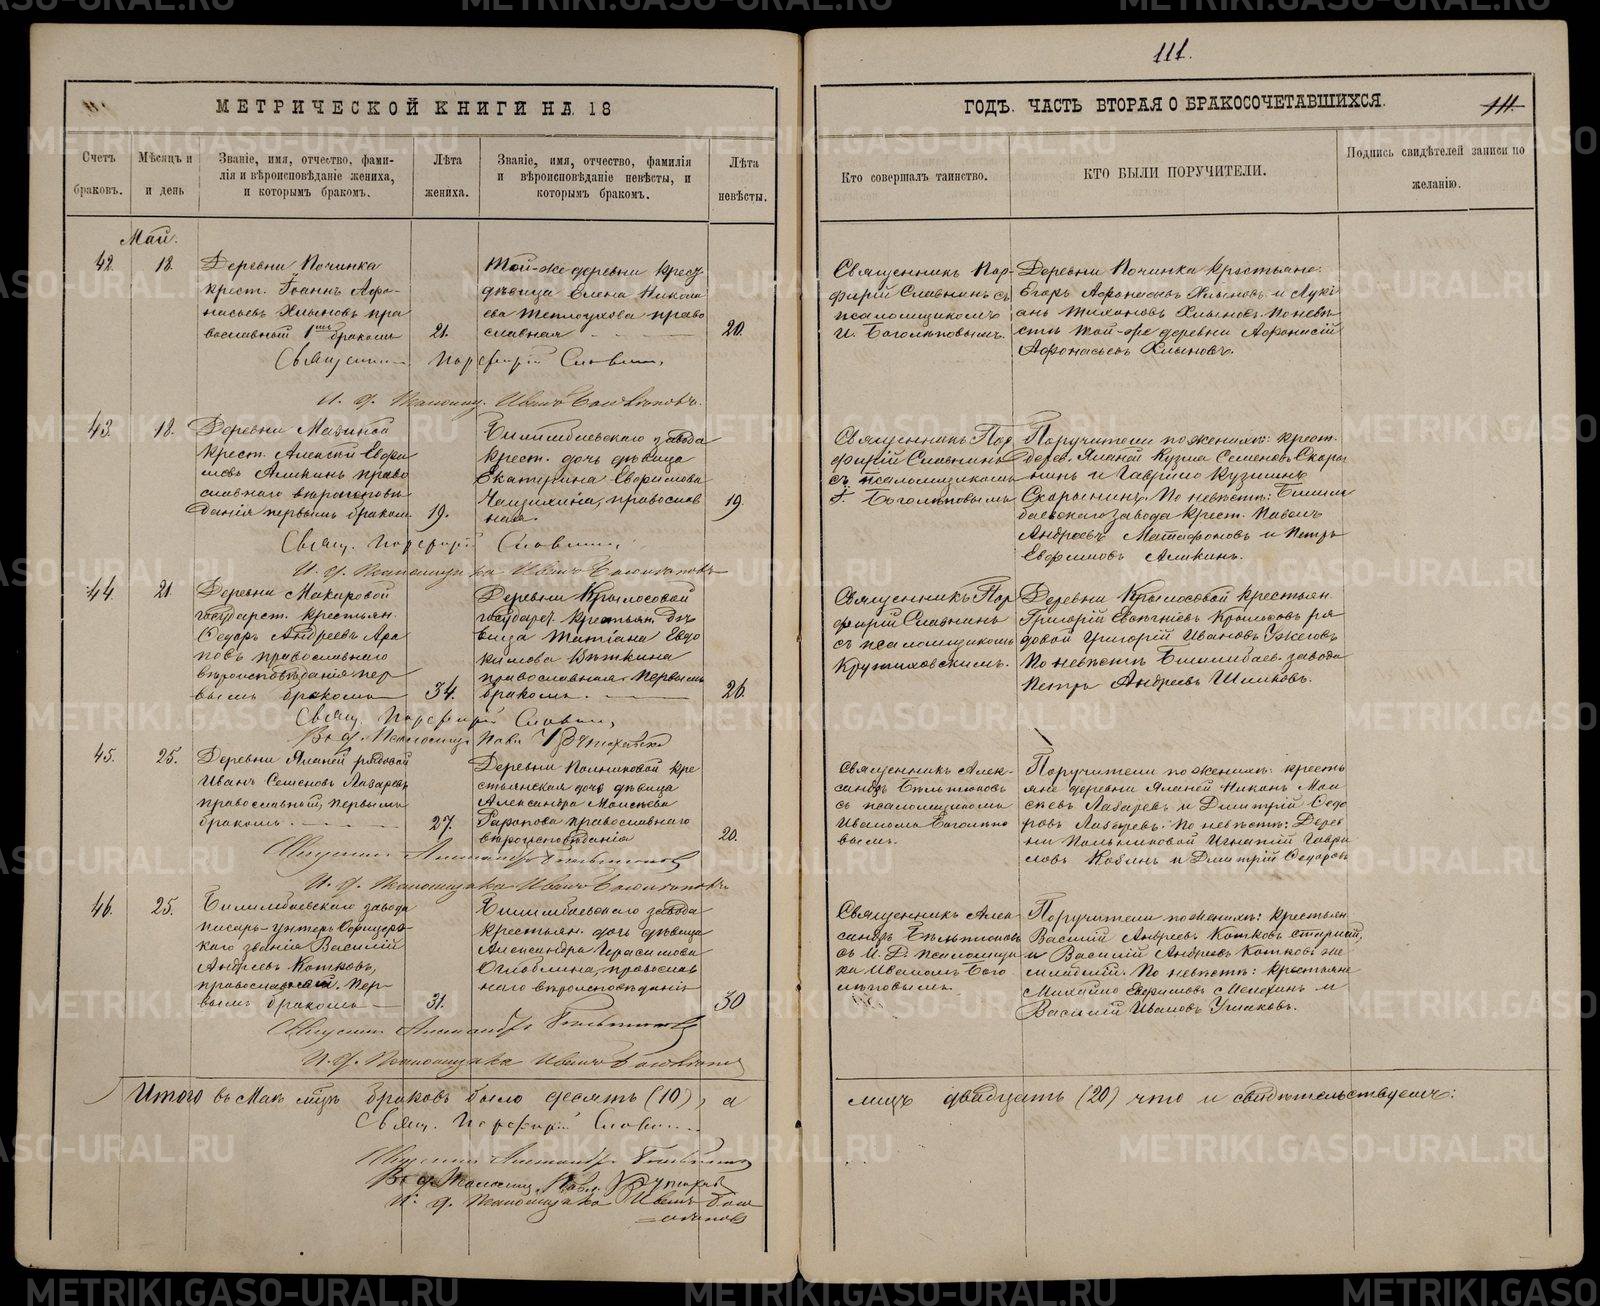 111.
МЕТРИЧЕСКОЙ КНИГИ НА 18
ГОДЪ. ЧАСТЬ ВТОРАЯ О БРАКОСОЧЕТАВШИХСЯ.
111.
Счетъ браковъ.
Мѣсяцъ и и день
Званіе, имя, отчество, фами-
лія и вѣроисповѣданіе жениха,
и которымъ бракомъ.
Лѣта
жениха.
Званіе, имя, отчество, фамилія
и вѣроисповѣданіе невѣсты, и
которымъ бракомъ.
Лѣта
невѣсты.
Кто совершалъ таинство.
КТО БЫЛИ ПОРУЧИТЕЛИ.
Подпись свидѣтелей записи по
желанію.
Май.
42.
18.
Деревни Починка
крест. Іоаннъ Афо-
насьевъ Хлыновъ пра
вославный 1мъ бракомъ
21.
Той-же деревни крест
дѣвица Елена Никола
ева Теплоухова право
славная
20.
Священникъ Пор-
фирій Славнинъ съ
псаломщикомъ
И. Боголѣповымъ.
Деревни Починка крестьяне:
Егоръ Афонасьевъ Хлыновъ и Лукі
анъ Тихоновъ Хлыновъ. По невѣ
стѣ той-же деревни Афонасій
Афонасьевъ Хлыновъ.
Священникъ Порфирій Славнинъ
И. д. псаломщ. Иванъ Боголѣповъ.
43.
18.
Деревни
крест. Алексѣй Ефи
мовъ Аликинъ право
славнаго вѣроисповѣ
данія первымъ бракомъ
19.
Билимбаевскаго завода
крест. дочь дѣвица
Екатерина Ефимова
православ
ная.
19.
Священникъ Пор
фирій Славнинъ
съ псаломщикомъ
Боголѣповымъ
Поручители по женихѣ: крест.
дерев. Яланей Кузма Семеновъ Скоры
нинъ и Гаврило Кузминъ
Скорынинъ. По невѣстѣ: Билим
баевскаго завода крест. Павелъ
Андреевъ и Петръ
Евфимовъ Аликинъ.
Свящ. Порфирій Славнинъ
И. д. псаломщика Иванъ Боголѣповъ
44.
21.
Деревни Макаровой
государст. крестьян.
Ѳедоръ Андреевъ Ара
повъ православнаго
вѣроисповѣданія пер
вымъ бракомъ
34.
Деревни Крылосовой
государст. крестьян. дѣ
вица Татіана Евдо
кимова Вяткина
православная первымъ
бракомъ.
26.
Священникъ Пор
фирій Славнинъ
съ псаломщикомъ
Крутиховскимъ.
Деревни Крылосовой крестьян.
Григорій Евгеніевъ Крылосовъ ря
довой Григорій Ивановъ Ужеговъ
По невѣстѣ Билимбаев. завода
Петръ Андреевъ Шиликовъ.
Свящ. Порфирій Славнинъ
45.
25.
Деревни Яланей рядовой
Иванъ Семеновъ Лазаревъ
православный, первымъ
бракомъ.
27.
Деревни Польниковой кре
стьянская дочь дѣвица
Александра Моисѣева
православнаго
вѣроисповѣданія
20.
Священникъ Алек-
сандръ Бѣльтюковъ
съ псаломщикомъ
Иваномъ Боголѣпо
вымъ.
Поручители по женихѣ: кресть
яне деревни Яланей Никонъ Мои
сѣевъ Лазаревъ и Дмитрій Ѳедо
ровъ Лазаревъ. По невѣстѣ: Дерев
ни Польниковой Игнатій Гаври
ловъ и Дмитрій Ѳедоровъ
Священникъ Александръ Бѣльтюковъ
И. д. псаломщика Иванъ Боголѣповъ
46.
25.
Билимбаевскаго завода
писарь-унтеръ Офицерс-
каго званія Василій
Андреевъ Котковъ,
православный. Пер-
вымъ бракомъ
31.
Билимбаевскаго завода
крестьян. дочь дѣвица
Александра Герасимова
Оглоблина, православ
наго вѣроисповѣданія
30
Священникъ Алек
сандръ Бѣльтюковъ
съ И. Д. псаломщи
ка Иваномъ Бого
лѣповымъ.
Поручители по женихѣ: крестьян
Василій Андреевъ Котковъ старшій,
и Василій Андреевъ Котковъ же
младшій. По невѣстѣ: крестьяне
Михайло Ефимовъ Мелехинъ и
Василій Ивановъ Ушаковъ.
Священникъ Александръ Бѣльтюковъ
И. д. псаломщика Иванъ Боголѣповъ
Итого въ Маѣ мцѣ браковъ было десять (10), а
лицъ двадцать (20) что и свидѣтельствуемъ:
Свящ. Порфирій Славнинъ
Священникъ Александръ Бѣльтюковъ
И. д. псаломщика Иванъ Бого
лѣповъ
METRIKI.GASO-URAL.RU